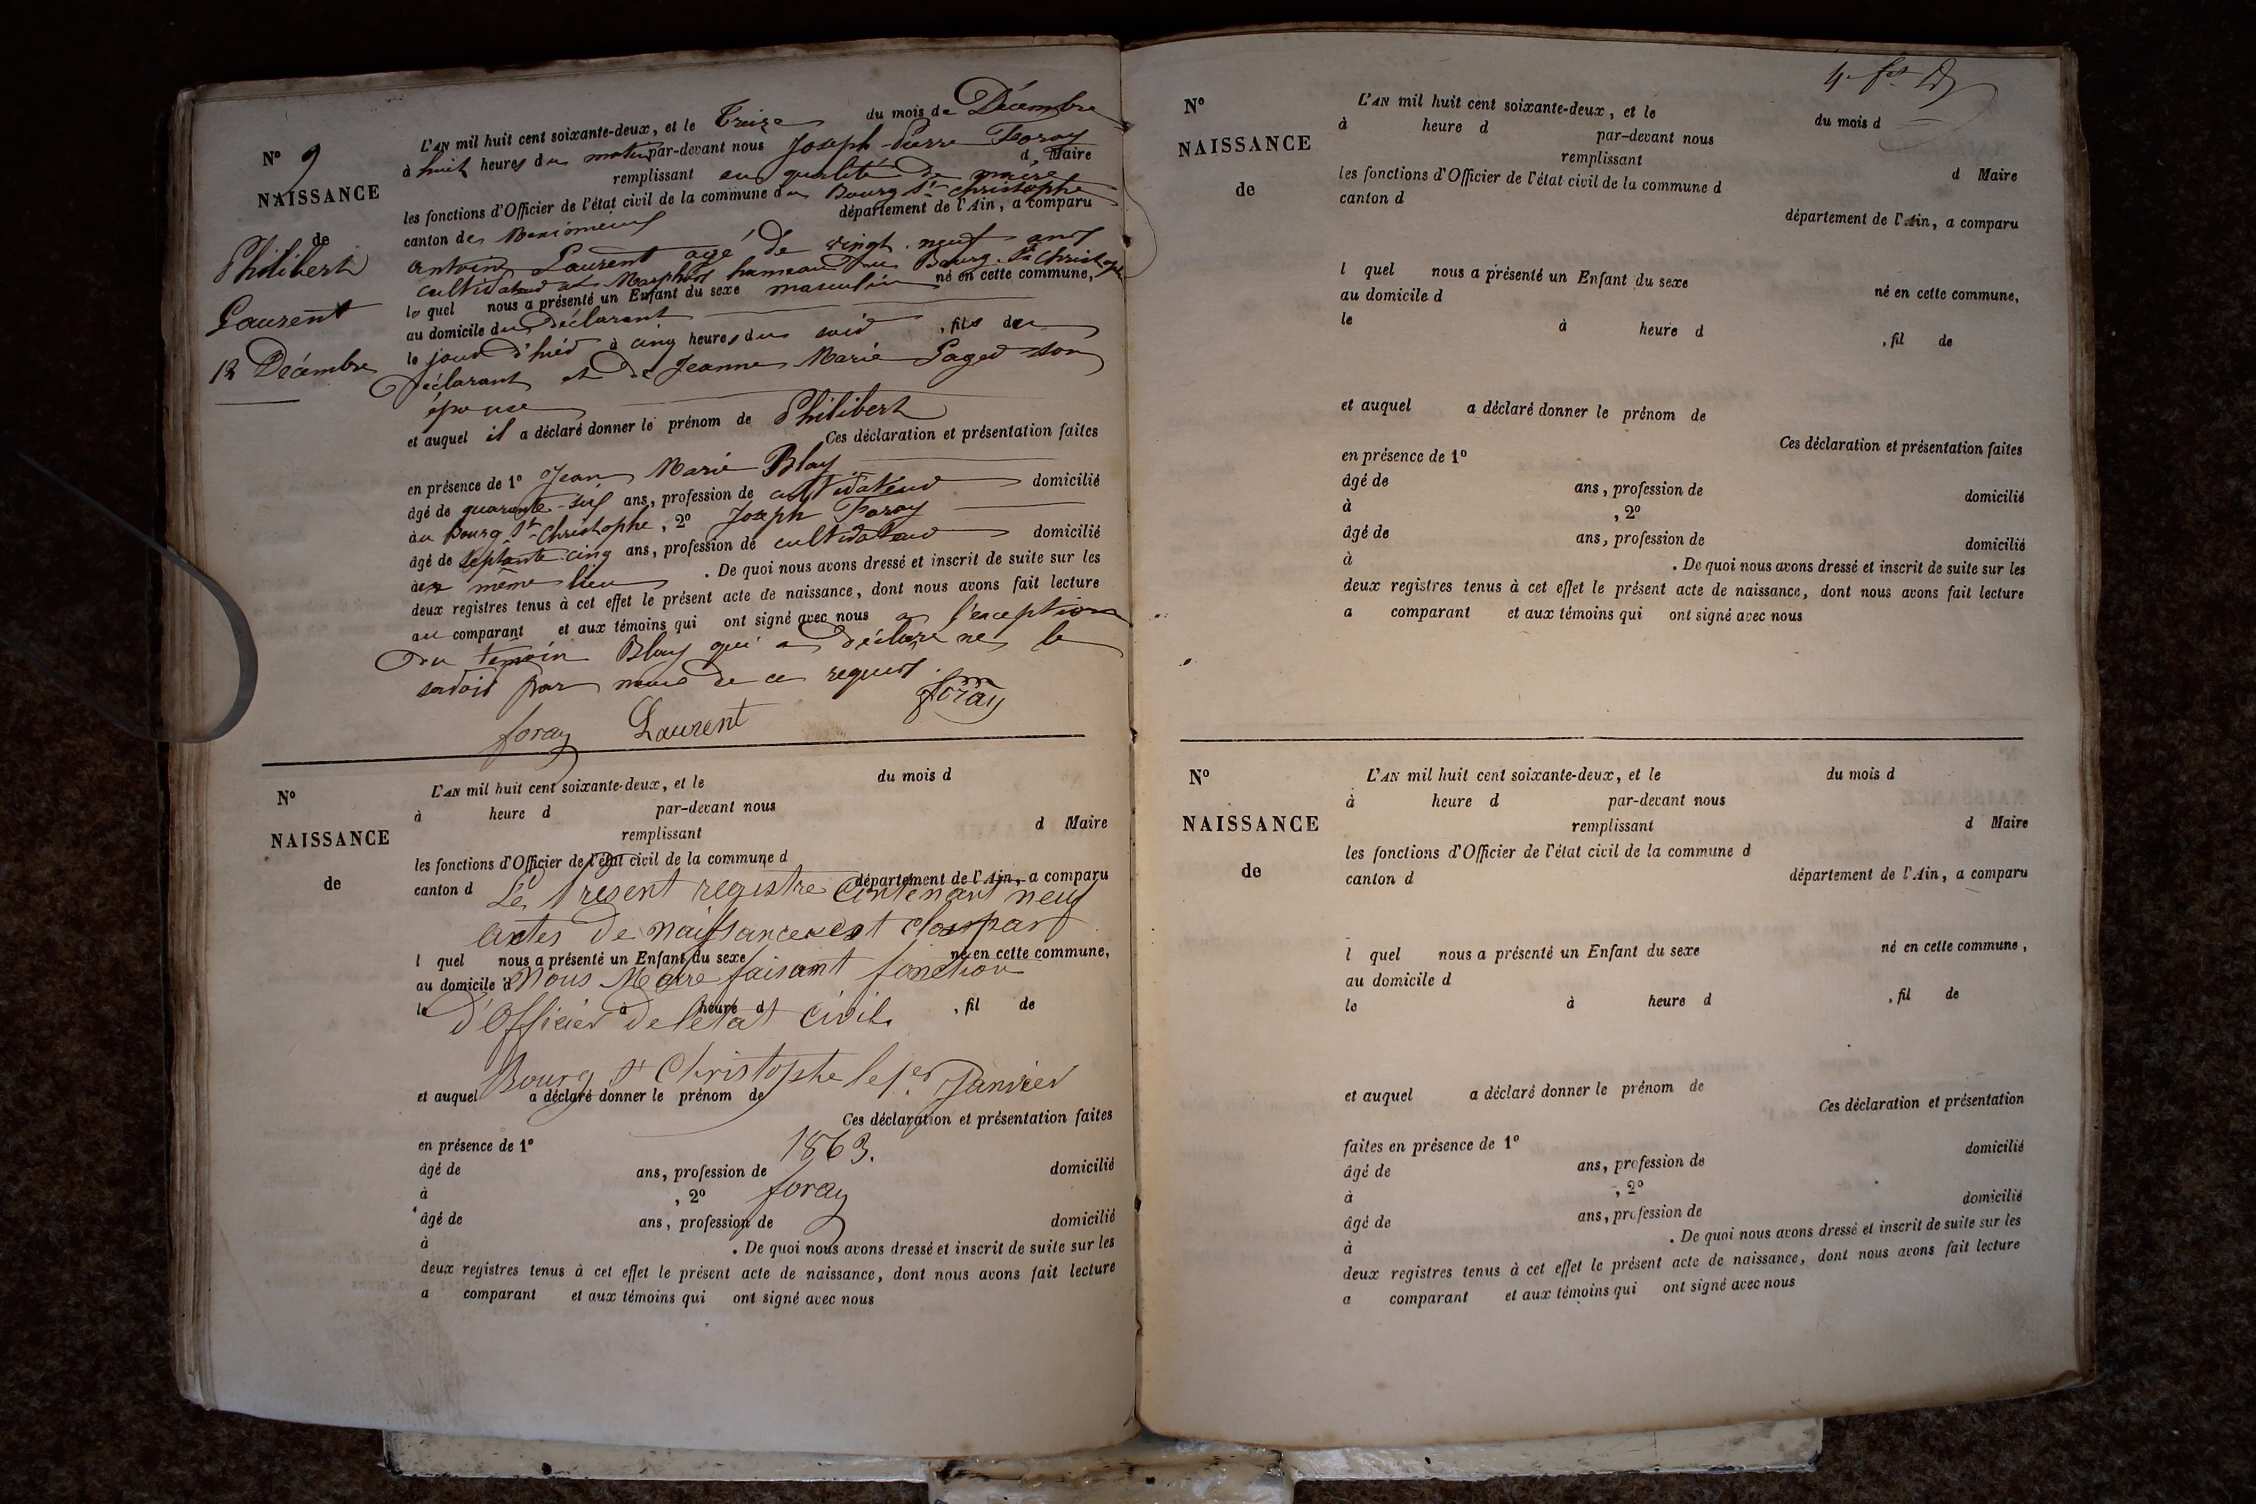 N° 9
NAISSANCE
de
Philibert
Laurent
12 Décembre
L'AN mil huit cent soixante-deux, et le Treize du mois de Décembre
à huit heures du matin par-devant nous Joseph-Pierre Foray
remplissant en qualité de maire d Maire
les fonctions d'Officier de l'état civil de la commune du Bourg St Christophe
canton de Meximieux département de l'Ain, a comparu
antoine Laurent agé de vingt-neuf ans
cultivateur au hameau du Bourg St Christophe
le quel nous a présenté un Enfant du sexe masculin né en cette commune,
au domicile du Déclarant
le jour d'hier à cinq heures du soir, fils du
Déclarant et de Jeanne Marie Page son
épouse
et auquel il a déclaré donner le prénom de Philibert
Ces déclaration et présentation faites
en présence de 1° Jean Marie Blay
âgé de quarante-six ans, profession de cultivateur domicilié
au Bourg St-Christophe, 2° Joseph Foray
âgé de septante-cinq ans, profession de cultivateur domicilié
au même lieu. De quoi nous avons dressé et inscrit de suite sur les
deux registres tenus à cet effet le présent acte de naissance, dont nous avons fait lecture
au comparant et aux témoins qui ont signé avec nous a l'exception
du témoin Blay qui a déclaré ne le
savoir par nous de ce requis.
foray Laurent foray
N°
NAISSANCE
de
L'AN mil huit cent soixante-deux, et le du mois d
à heure d par-devant nous
remplissant d Maire
les fonctions d'Officier de l'état civil de la commune d
canton d département de l'Ain, a comparu
Le Présent registre Contenant neuf
actes de naissance est clos par
l quel nous a présenté un Enfant du sexe né en cette commune,
au domicile d
Nous Maire faisant fonction
le à heure d , fil de
d'Officier de l'état civil.
Bourg St Christophe le 1er Janvier
et auquel a déclaré donner le prénom de
Ces déclaration et présentation faites
1863.
en présence de 1°
âgé de ans, profession de domicilié
à , 2°
foray
âgé de ans, profession de domicilié
à . De quoi nous avons dressé et inscrit de suite sur les
deux registres tenus à cet effet le présent acte de naissance, dont nous avons fait lecture
a comparant et aux témoins qui ont signé avec nous
N°
NAISSANCE
de
L'AN mil huit cent soixante-deux, et le du mois d
à heure d par-devant nous
remplissant d Maire
les fonctions d'Officier de l'état civil de la commune d
canton d département de l'Ain, a comparu
l quel nous a présenté un Enfant du sexe né en cette commune,
au domicile d
le à heure d , fil de
et auquel a déclaré donner le prénom de
Ces déclaration et présentation faites
en présence de 1°
âgé de ans, profession de domicilié
à , 2°
âgé de ans, profession de domicilié
à . De quoi nous avons dressé et inscrit de suite sur les
deux registres tenus à cet effet le présent acte de naissance, dont nous avons fait lecture
a comparant et aux témoins qui ont signé avec nous
N°
NAISSANCE
de
L'AN mil huit cent soixante-deux, et le du mois d
à heure d par-devant nous
remplissant d Maire
les fonctions d'Officier de l'état civil de la commune d
canton d département de l'Ain, a comparu
l quel nous a présenté un Enfant du sexe né en cette commune,
au domicile d
le à heure d , fil de
et auquel a déclaré donner le prénom de
Ces déclaration et présentation
faites en présence de 1°
âgé de ans, profession de domicilié
à , 2°
âgé de ans, profession de domicilié
à . De quoi nous avons dressé et inscrit de suite sur les
deux registres tenus à cet effet le présent acte de naissance, dont nous avons fait lecture
a comparant et aux témoins qui ont signé avec nous